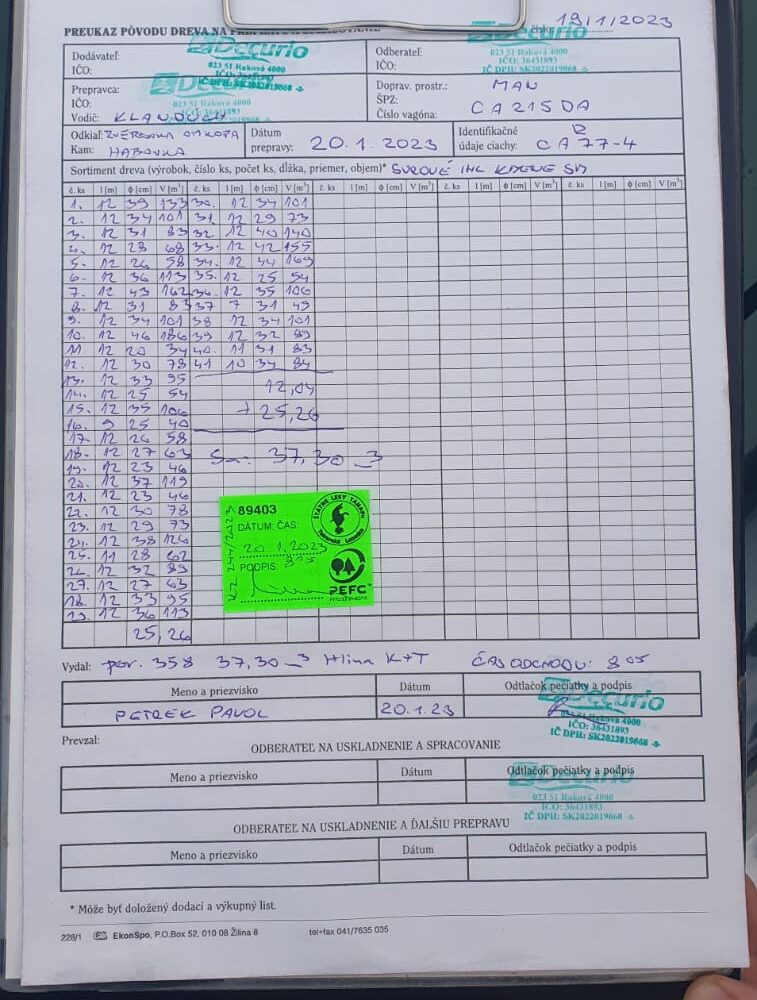 PREUKAZ PÔVODU DREVA NA
19/1/2023
Decurio
Decurio
Dodávateľ:
023 51 Raková 4000
IČO: 36431893
IČ DPH: SK2022019868 -6
IČO:
Odberateľ:
023 51 Raková 4000
IČO: 36431893
IČO:
IČ DPH: SK2022019868 -6
Prepravca:
Decurio
IČO:
023 51 Raková 4000
Vodič:
Doprav. prostr.: MAN
ŠPZ:
Číslo vagóna: CA215DA
Odkiaľ: ZVEROVKA
Kam: HABOVKA
Dátum
prepravy: 20.1.2023
Identifikačné
údaje ciachy: CA 77-4
Sortiment dreva (výrobok, číslo ks, počet ks, dĺžka, priemer, objem)* SUROVÉ IHL KMENE
č. ks l [m] ϕ [cm] V [m³] č. ks l [m] ϕ [cm] V [m³] č. ks l [m] ϕ [cm] V [m³] č. ks l [m] ϕ [cm] V [m³] č. ks l [m] ϕ [cm] V [m³]
1. 12 39 133 30. 12 34 101
2. 12 34 101 31 12 29 73
3. 12 31 83 32. 12 40 140
4. 12 28 68 33. 12 42 155
5. 12 26 58 34. 12 44 169
6. 12 36 113 35. 12 25 54
7. 12 43 162 36. 12 35 106
8. 12 31 83 37 7 31 49
9. 12 34 101 38 12 34 101
10. 12 46 186 39 12 32 89
11. 12 20 34 40. 11 31 83
12. 12 30 78 41 10 34 84
13. 12 33 95
12,04
14. 12 25 54
15. 12 35 106
+ 25,26
16. 9 25 40
17. 12 26 58
18. 12 27 63
37,30 m3
19. 12 23 46
20. 12 37 119
21. 12 23 46
22. 12 30 78
23. 12 29 73
24. 12 38 126
25. 11 28 62
26. 12 32 89
27. 12 27 63
28. 12 33 95
29. 12 36 113
25,26
89403
ŠTÁTNE LESY TANAPU
DÁTUM, ČAS:
20.1.2023
PODPIS: 815
PEFC
KZ 244/2023
Vydal: por. 358 37,30 m3 Hlina K+T ČAS ODCHODU: 805
Meno a priezvisko Dátum Odtlačok pečiatky a podpis
Decurio
PETREK PAVOL 20.1.23
023 51 Raková 4000
IČO: 36431893
IČ DPH: SK2022019868 -6
Prevzal:
ODBERATEĽ NA USKLADNENIE A SPRACOVANIE
Meno a priezvisko Dátum Odtlačok pečiatky a podpis
Decurio
023 51 Raková 4000
IČO: 36431893
IČ DPH: SK2022019868 -6
ODBERATEĽ NA USKLADNENIE A ĎALŠIU PREPRAVU
Meno a priezvisko Dátum Odtlačok pečiatky a podpis
* Môže byť doložený dodací a výkupný list.
228/1 EkonSpo, P.O.Box 52, 010 08 Žilina 8 tel+fax 041/7635 035